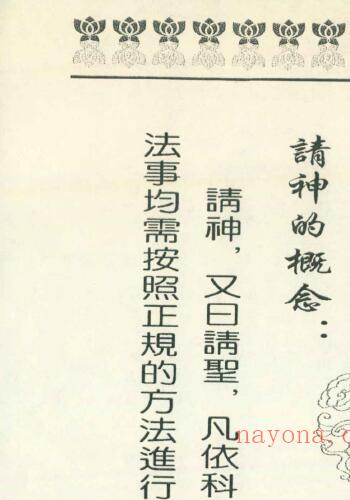 請神的概念：
請神，又曰請聖，凡依科
法事均需按照正規的方法進行